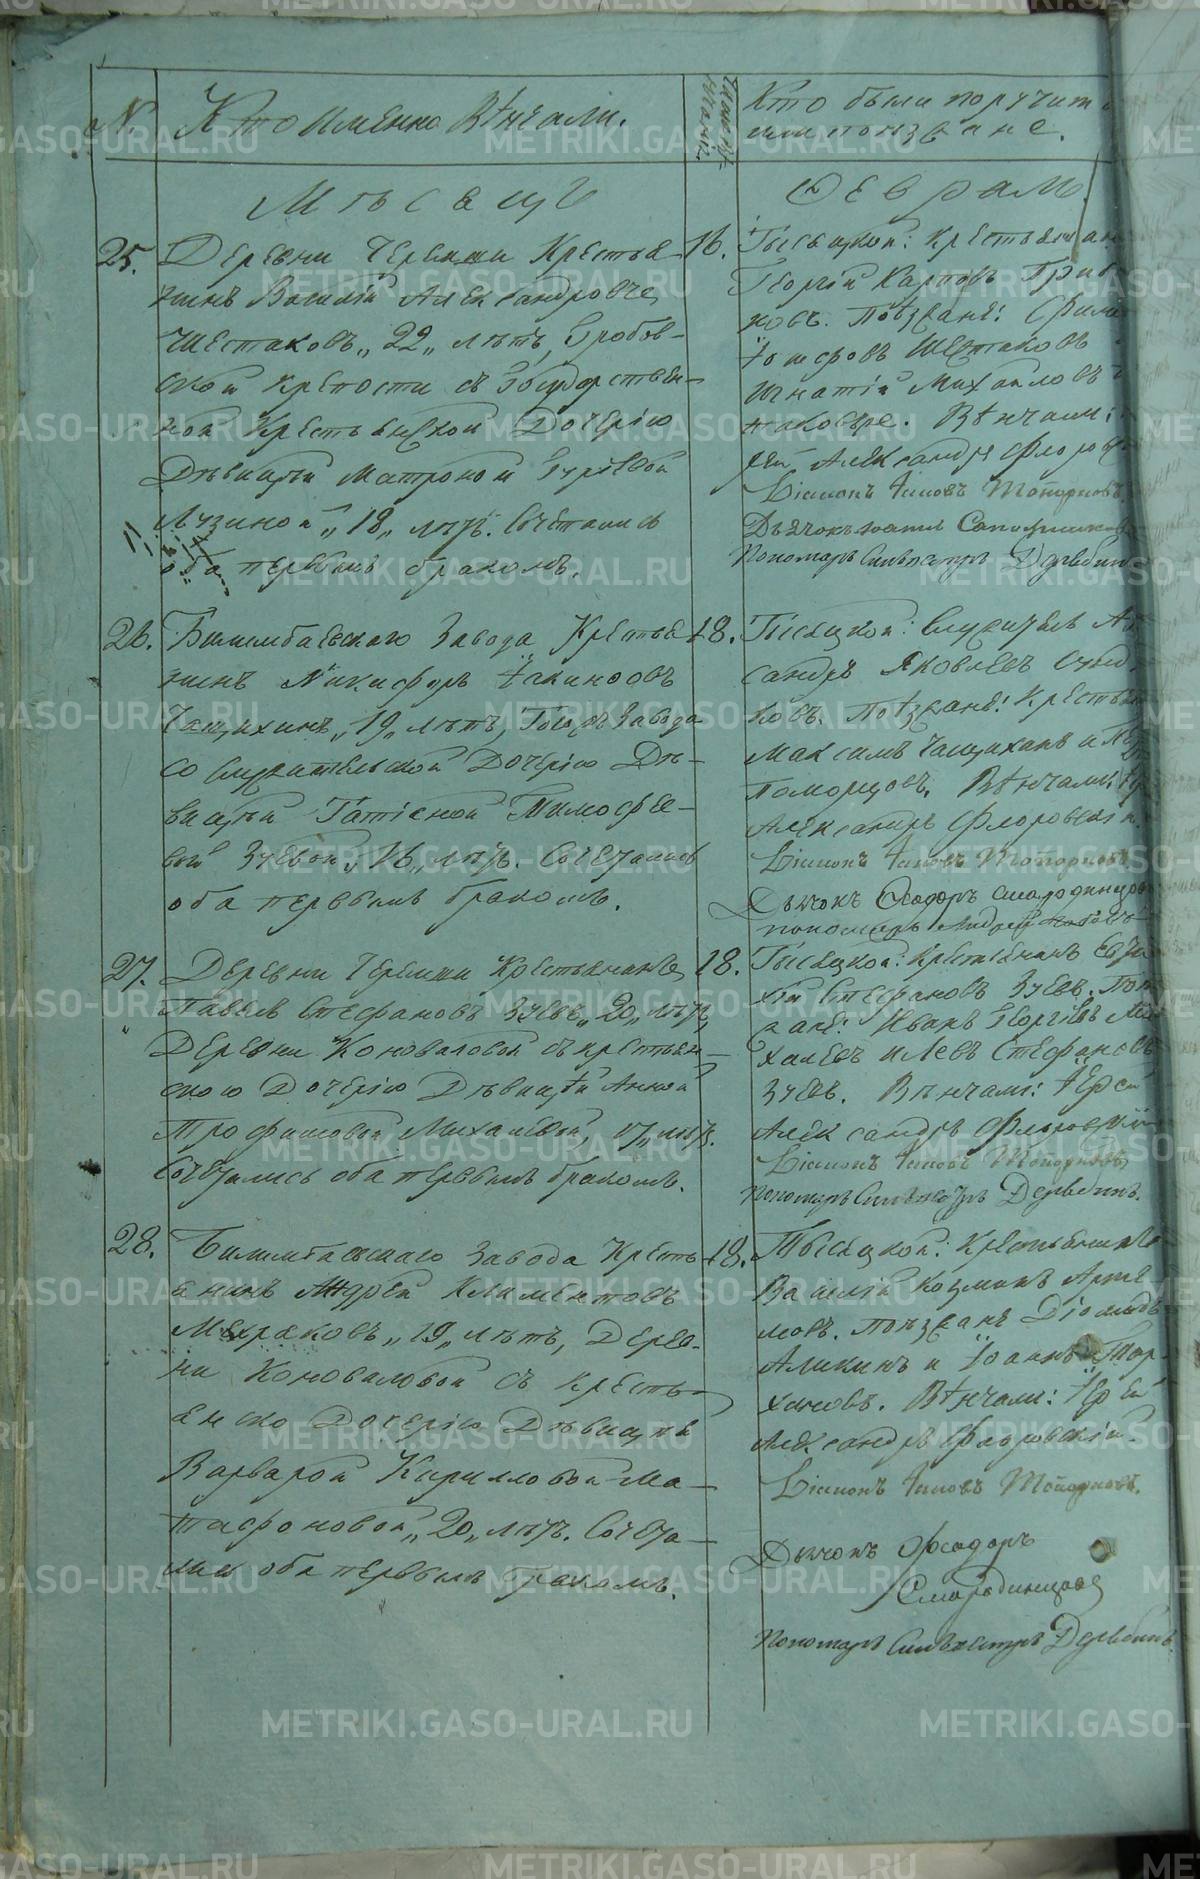 N.
Кто именно Вѣнчали.
Кто были поручит
или поезжане.
Мѣсяцъ
Февраль.
25.
Деревни Черемши Крестья-
нинъ Василій Александровъ
Шестаковъ „22„ лѣтъ, Гробов-
ской крепости съ Государствен-
ной Крестьянской Дочерію
Дѣвицей Матроной Гурьевой
Лузиной „18„ лѣтъ. Сочетались
оба первымъ бракомъ.
16.
Тысяцкой: Крестьянин
Георгій Карповъ
новъ. Поезжане:
Іосифовъ Шестаковъ
Игнатій Михайловъ
Вѣнчали:
рей Александръ Флоров
Діаконъ Іаковъ Топорковъ.
Дьячокъ Сапожников
Пономарь Сильвестръ Дерябин
26.
Билимбаевскаго Завода Крестья-
нинъ Никифоръ Іакинфовъ
Чащихинъ „19„ лѣтъ, Того жъ Завода
со Служительской Дочерію Дѣ-
вицей Татіаной Тимофее-
вой Зуевой „16„ лѣтъ. Сочетались
оба первымъ бракомъ.
18.
Тысяцкой: Служитель Ал
сандръ Яковлевъ
ковъ. Поезжане: Крестья
Максимъ Чащихинъ и
Поморцовъ. Вѣнчали:
Александръ Флоровскій
Діаконъ Іаковъ Топорковъ
Дьячокъ Феодоръ Смородинцов
пономарь Андрей
27.
Деревни Черемши Крестьянинъ
Павелъ Стефановъ Зуевъ „20„ лѣтъ,
Деревни Коноваловой съ крестьян-
скою Дочерію Дѣвицей Анной
Трофимовой Михалевой, 17„ лѣтъ.
Сочетались оба первымъ бракомъ.
18.
Тысяцкой: Крестьянинъ Евти
хій Стефановъ Зуевъ. Поез
жане: Иванъ Георгіевъ Ми
халевъ и Левъ Стефановъ
Зуевъ. Вѣнчали: Іерей
Александръ Флоровскій
Діаконъ Іаковъ Топорковъ
Пономарь Сильвестръ Дерябинъ.
28.
Билимбаевскаго Завода Кресть-
янинъ Андрей Климентовъ
Мехряковъ „19„ лѣтъ, Дерев-
ни Коноваловой съ кресть-
янско Дочерію Дѣвицей
Варварой Кирилловой Ма-
тафоновой „20„ лѣтъ. Сочета-
лись оба первымъ бракомъ.
18.
Тысяцкой: Крестьянинъ
Василій Козминъ Арте-
мовъ. Поезжанъ Діомидъ
Аликинъ и Іоаннъ Тор-
хановъ. Вѣнчали: Іерей
Александръ Флоровскій
Діаконъ Іаковъ Топорковъ.
Дьячокъ Феодоръ
Смородинцовъ
Пономарь Сильвестръ Дерябинъ.
METRIKI.GASO-URAL.RU